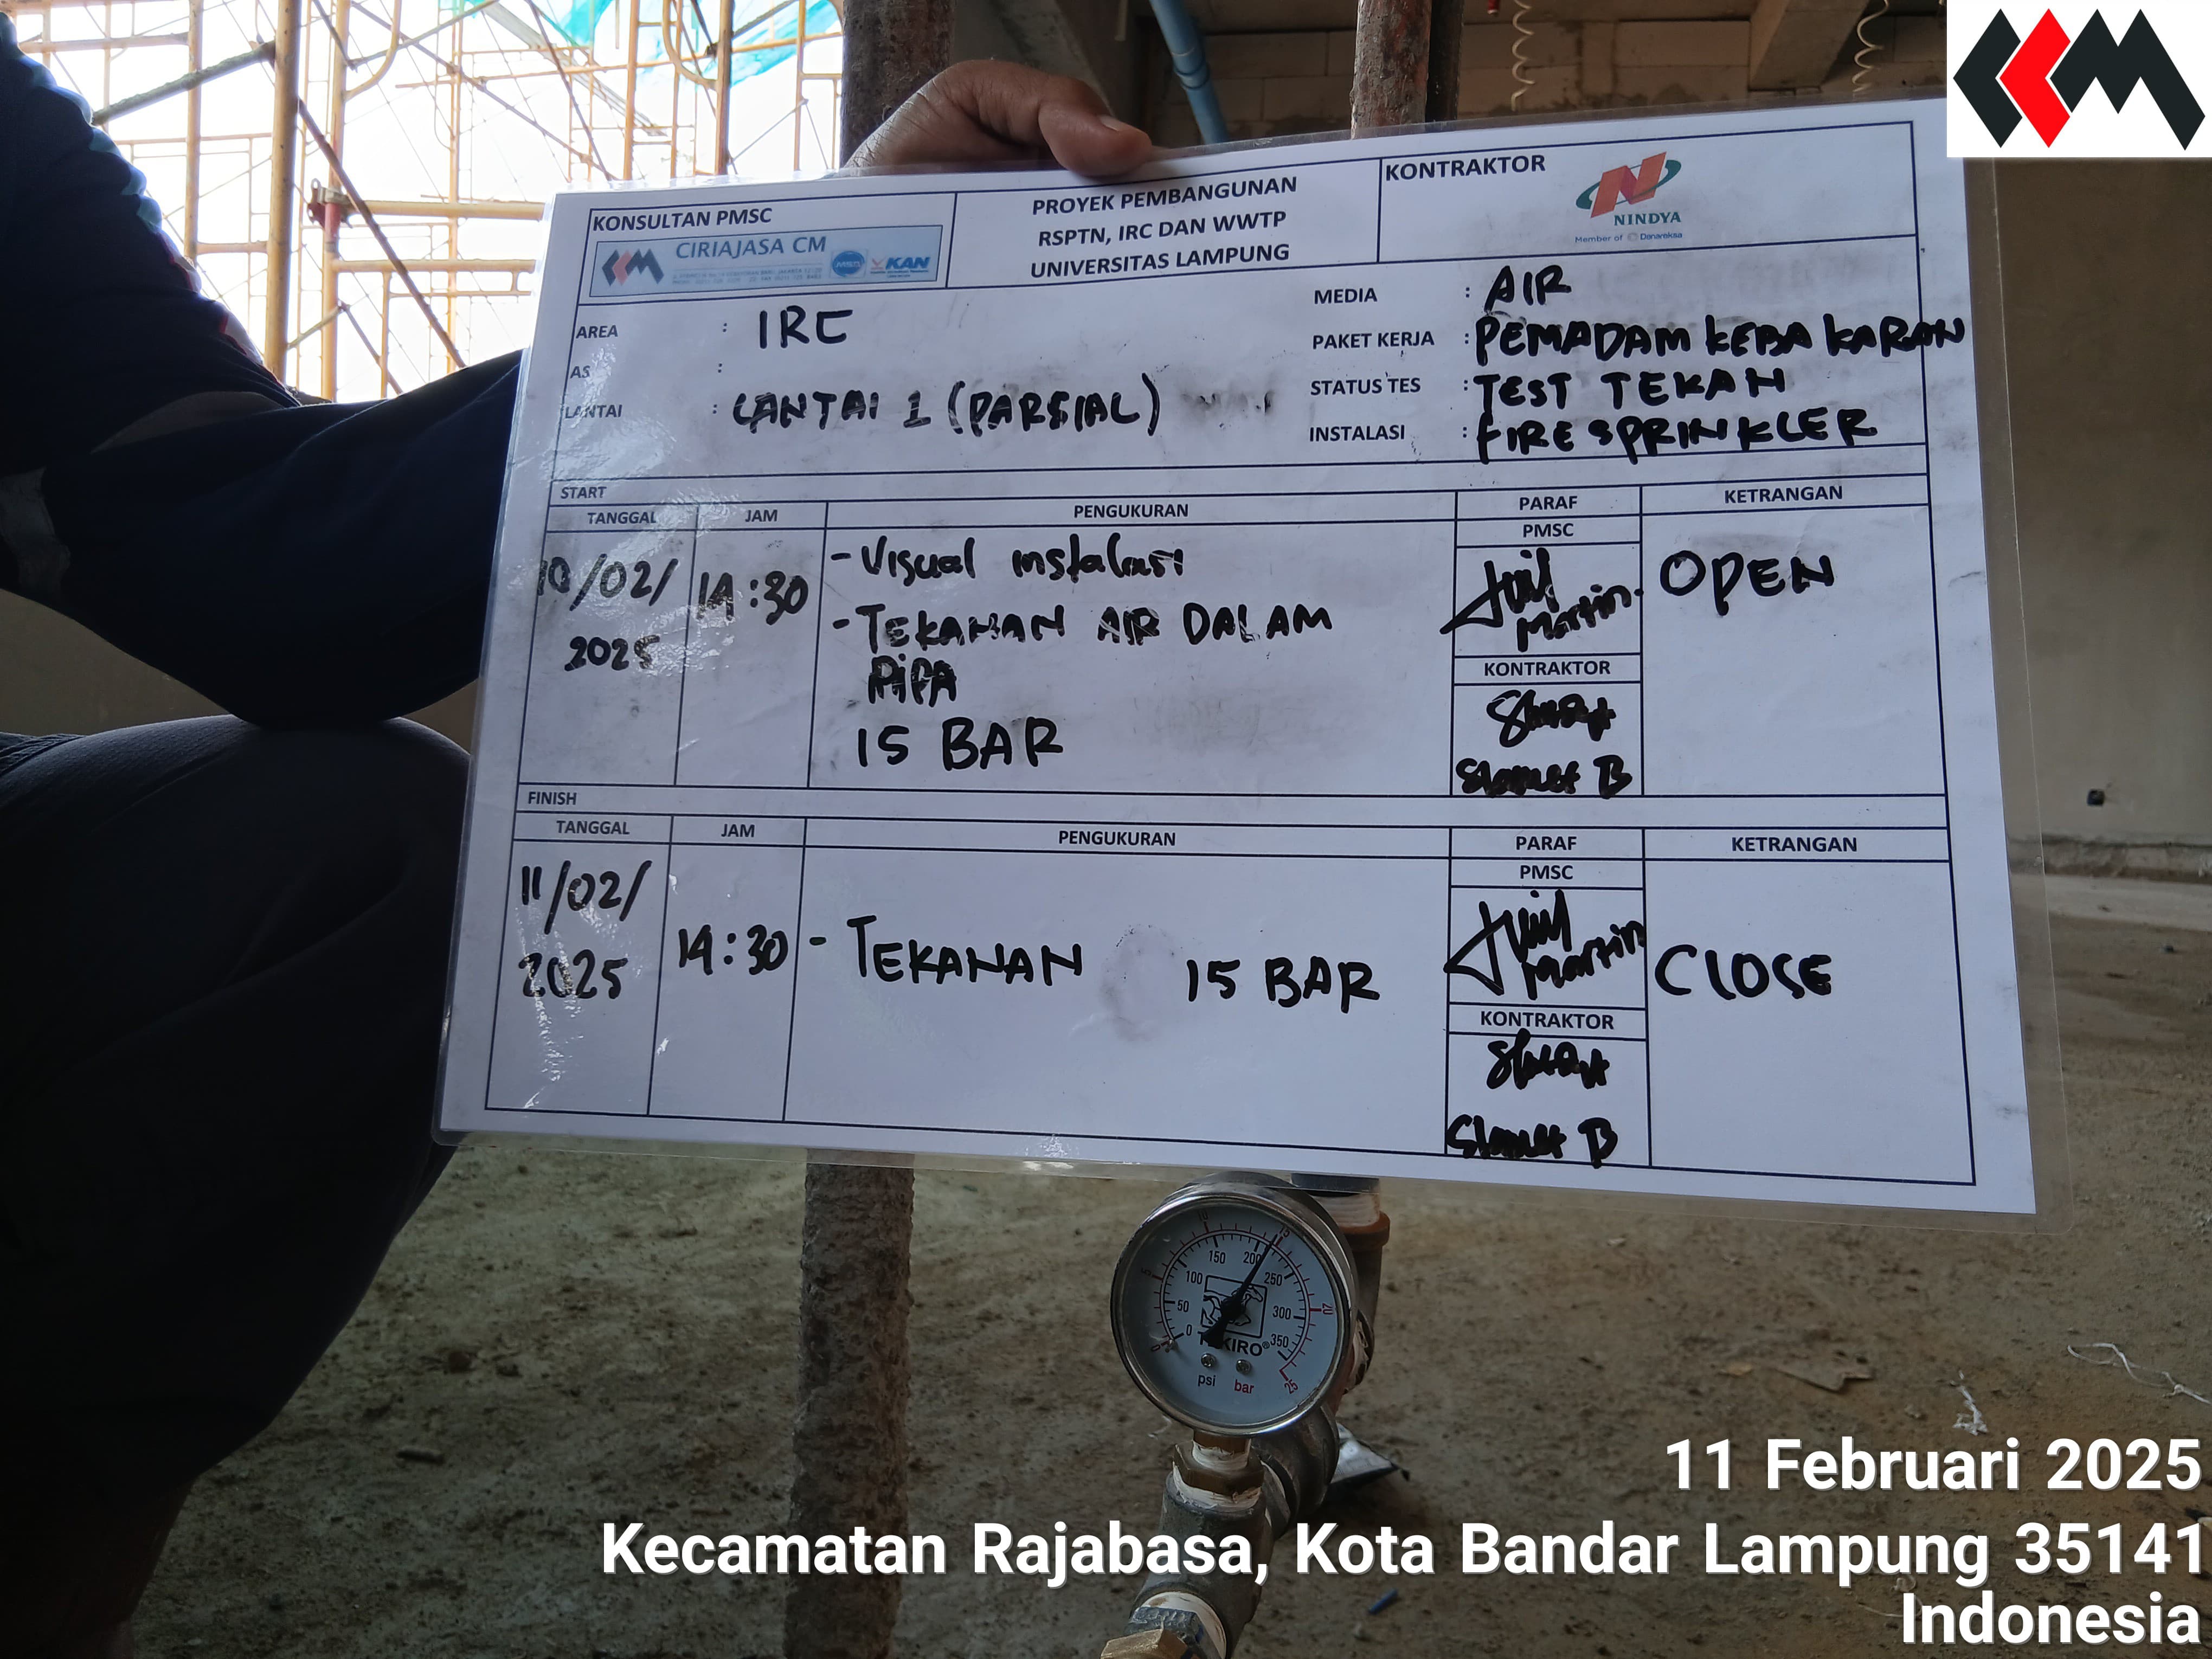 KONSULTAN PMSC
CIRIAJASA CM
KAN
PROYEK PEMBANGUNAN
RSPTN, IRC DAN WWTP
UNIVERSITAS LAMPUNG
KONTRAKTOR
NINDYA
Member of Danareksa
AREA : IRC
AS :
LANTAI : LANTAI 1 (PARSIAL)
MEDIA : AIR
PAKET KERJA : PEMADAM KEBAKARAN
STATUS TES : TEST TEKAN
INSTALASI : FIRE SPRINKLER
START
TANGGAL JAM PENGUKURAN PARAF KETRANGAN
PMSC
10/02/
2025
14:30
- Visual instalasi
- TEKANAN AIR DALAM
PIPA
15 BAR
Martin
OPEN
KONTRAKTOR
Slamet B
FINISH
TANGGAL JAM PENGUKURAN PARAF KETRANGAN
PMSC
11/02/
2025
14:30
- TEKANAN 15 BAR
Martin
CLOSE
KONTRAKTOR
Slamet B
0 50 100 150 200 250 300 350
20 25
TEKIRO®
psi bar
11 Februari 2025
Kecamatan Rajabasa, Kota Bandar Lampung 35141
Indonesia